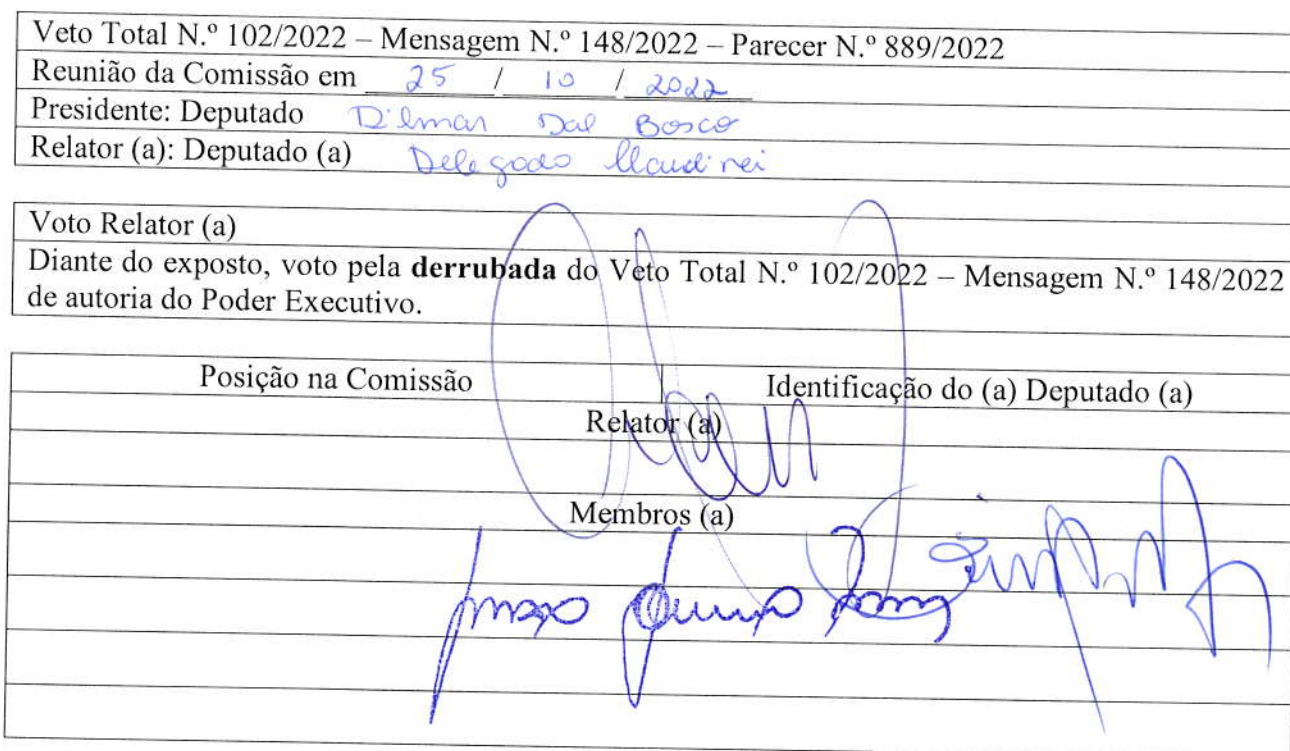 Veto Total N.º 102/2022 – Mensagem N.º 148/2022 – Parecer N.º 889/2022
Reunião da Comissão em 25 / 10 / 2022
Presidente: Deputado Dilmar Dal Bosco
Relator (a): Deputado (a) Delegado Claudinei
Voto Relator (a)
Diante do exposto, voto pela derrubada do Veto Total N.º 102/2022 – Mensagem N.º 148/2022
de autoria do Poder Executivo.
Posição na Comissão Identificação do (a) Deputado (a)
Relator (a)
Membros (a)